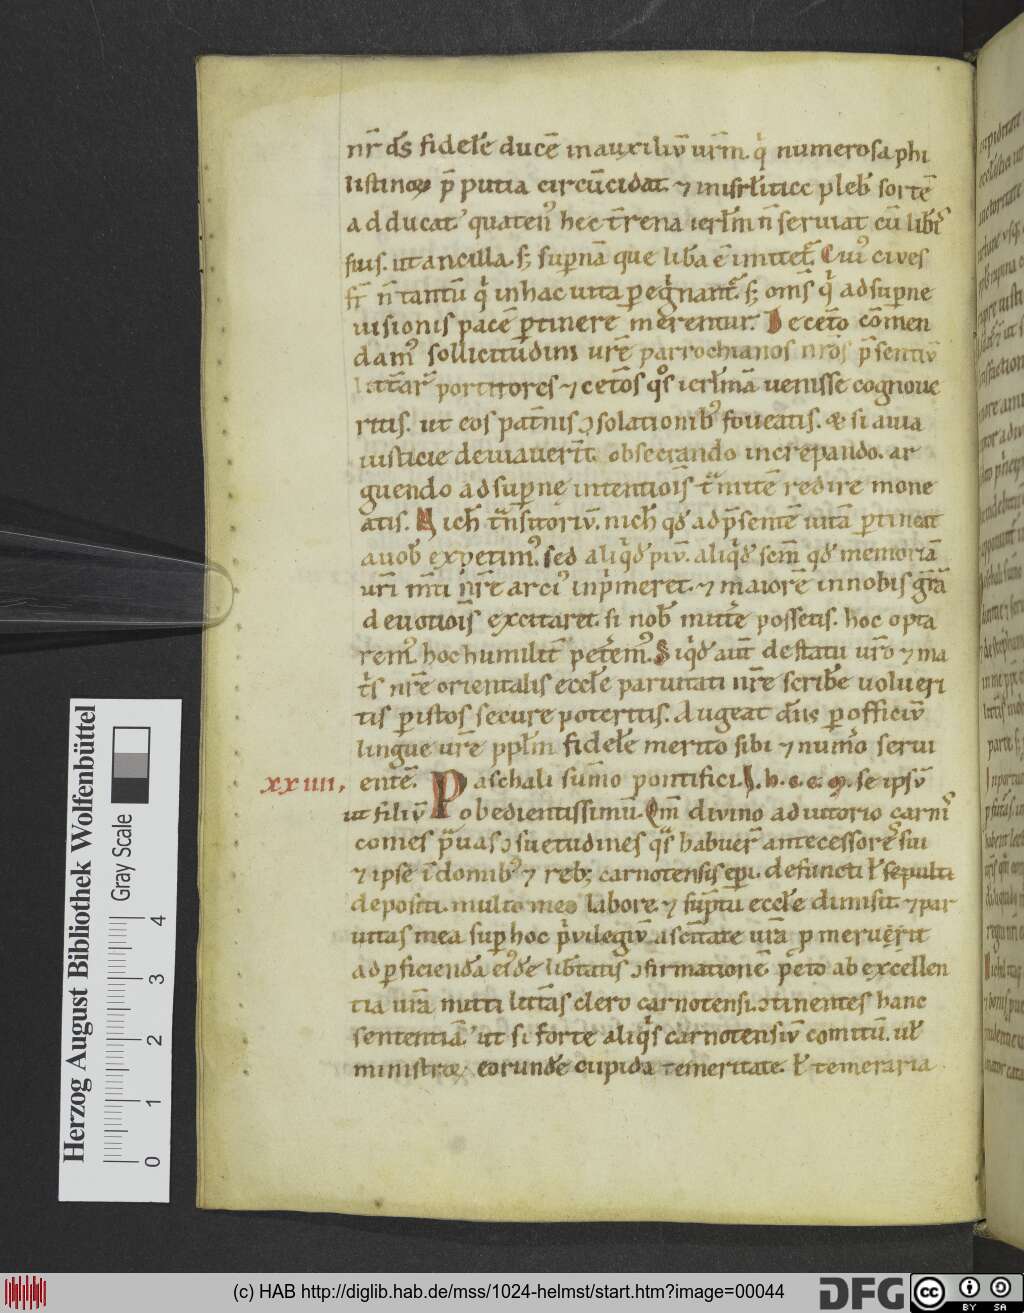 nr̄ ds̄ fidelē ducē in auxiliū urm̄. qͥ numerosa phi
listinoꝝ p̄putia circūcidat. ⁊ misrl̄iticę pleb̄ sortē
adducat. quatenꝰ hec tr̄rena ierl̄m n̄ seruiat cū lib̄
suis. ut ancilla. sꝫ supnā que lib̄a ē imitet̄. Cuiꝰ ciues
sr̄ n̄ tantū qͥ in hac uita pegͥnant̄. sꝫ oms̄ qͥ ad supne
uisionis pacē ptinere merentur. De cet̄o cōmen
damꝰ sollicitudini ur̄e parrochianos nr̄os p̄sentiū
litt̄aꝝ portitores ⁊ cet̄os qͦs ierl̄mā uenisse cognoue
ritis. ut eos pat̄nis ɔsolationibꝰ foueatis. & si a uia
iusticie deuiauerīt. obsecrando increpando. ar
guendo ad supne intentiōis tͣmitē redire mone
atis. Nich̄ tͣnsitoriū. nich̄ qđ ad p̄sentē uitā ptineat
a uob̄ expetimꝰ. sed aliqͥđ piū. aliqͥđ scm̄ qđ memoriā
uri m̄ti nr̄e arciꝰ inpͥmeret. ⁊ maiorē in nobis gr̄ā
deuotiōis excitaret. si nob̄ mittͥe possetis. hoc opta
remꝰ. hoc humilit̄ petͥemꝰ. Siqͥđ aut̄ de statu ur̄o ⁊ ma
tͥs nr̄e orientalis eccl̄e paruitati nr̄e scribē uolueri
tis pistos secure poteritis. Augeat dn̄s pofficiū
lingue ur̄e ppl̄m fidelē merito sibi ⁊ numͦo serui
xxiiii. entē. Paschali sūmo pontifici. I. h. s. e. m. se ipsū
ut filiū obedientissimū. Qm̄ diuino adiutorio carnͥ
comes pͣuas ɔsuetudines qͣs habuer̄ antecessores sui
⁊ ipse ī domibꝰ ⁊ rebꝫ carnotensis epī. defuncti ł sepulti
depositi. multo meo labore ⁊ suptū eccl̄e dimisit. ⁊ par
uitas mea sup hoc pͥuilegiū a scīitate ur̄a pmeruerit
ad pficiendā eiꝰđe libt̄atis ɔfirmationē. pͥeto ab excellen
tia ur̄a mitti litt̄as clero carnotensi. ɔtinentes hanc
sententiā. ut si forte aliqͥs carnotensiū comitū. uł
ministroꝝ eorundē cupida temeritate. ł temeraria
Herzog August Bibliothek Wolfenbüttel
Gray Scale
0 1 2 3 4
(c) HAB http://diglib.hab.de/mss/1024-helmst/start.htm?image=00044
DFG
cc BY SA